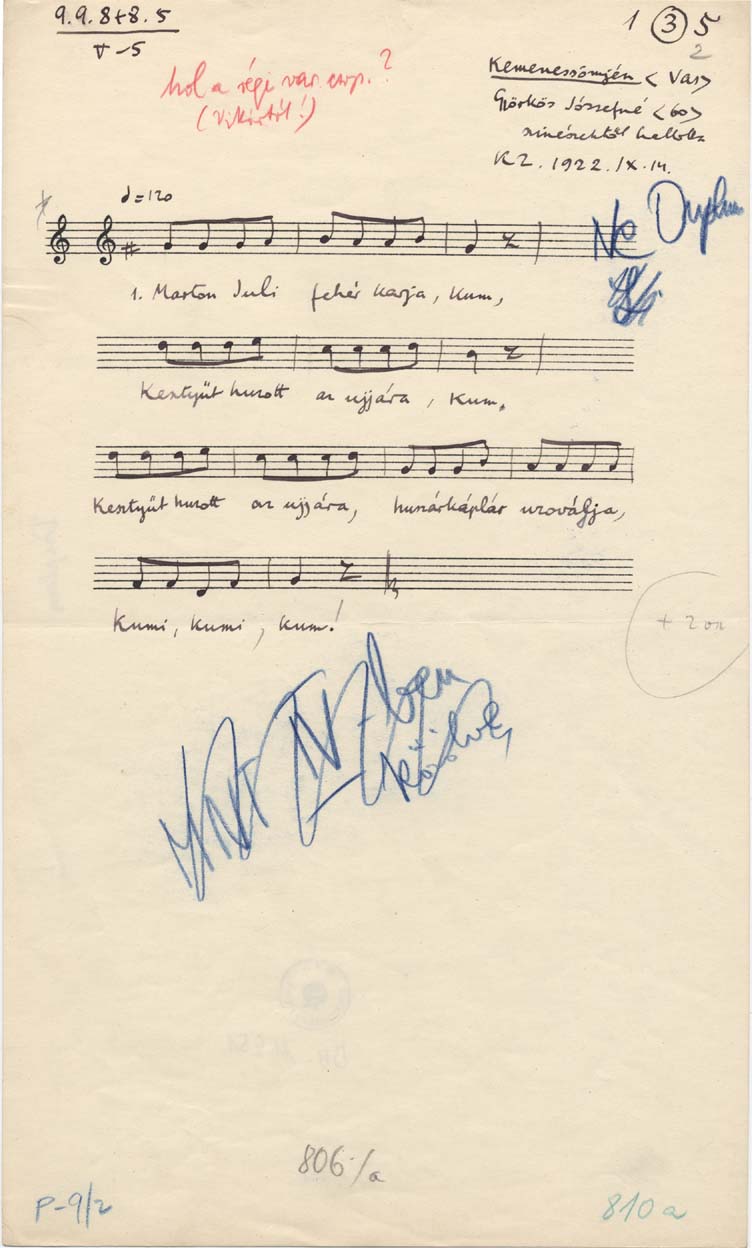 9.9.8+8.5
V –5
1 ③ 5
2
hol a régi var.
(Vikártól!)
Kemenessömjén <Vas>
Györkös Józsefné <60>
színészektől hallotta
K Z. 1922. IX. 14.
=120
Ne
1. Marton Juli fehér karja, kum,
Kesztyűt huzott az ujjára, kum.
Kesztyűt huzott az ujjára, huszárkáplár
Kumi, kumi, kum!
+ 2 on
IV-ben
806/a
P-9/2
810 a